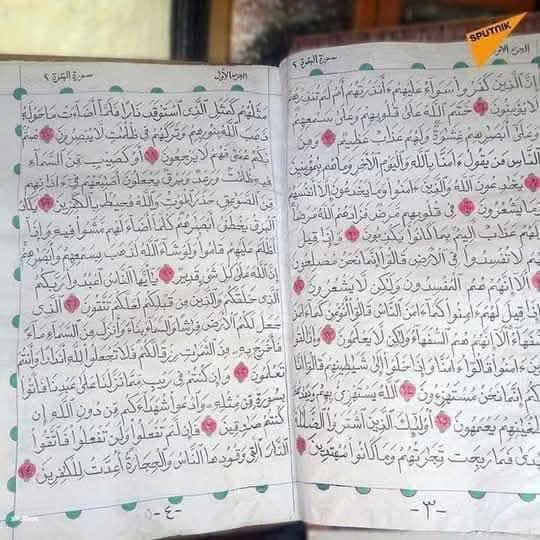 SPUTNIK
الجزء الأول
سورة البقرة ٢
إِنَّ الَّذِينَ كَفَرُوا سَوَاءٌ عَلَيْهِمْ ءَأَنذَرْتَهُمْ أَمْ لَمْ تُنذِرْهُمْ
لَا يُؤْمِنُونَ ٦ خَتَمَ اللَّهُ عَلَىٰ قُلُوبِهِمْ وَعَلَىٰ سَمْعِهِمْ
وَعَلَىٰ أَبْصَٰرِهِمْ غِشَٰوَةٌ وَلَهُمْ عَذَابٌ عَظِيمٌ ٧ وَمِنَ
النَّاسِ مَن يَقُولُ ءَامَنَّا بِاللَّهِ وَالْيَوْمِ الْآخِرِ وَمَا هُم بِمُؤْمِنِينَ
٨ يُخَٰدِعُونَ اللَّهَ وَالَّذِينَ ءَامَنُوا وَمَا يَخْدَعُونَ إِلَّا أَنفُسَهُمْ
وَمَا يَشْعُرُونَ ٩ فِي قُلُوبِهِم مَّرَضٌ فَزَادَهُمُ اللَّهُ مَرَضًا
وَلَهُمْ عَذَابٌ أَلِيمٌ بِمَا كَانُوا يَكْذِبُونَ ١٠ وَإِذَا قِيلَ
لَهُمْ لَا تُفْسِدُوا فِي الْأَرْضِ قَالُوا إِنَّمَا نَحْنُ مُصْلِحُونَ
١١ أَلَا إِنَّهُمْ هُمُ الْمُفْسِدُونَ وَلَٰكِن لَّا يَشْعُرُونَ ١٢
وَإِذَا قِيلَ لَهُمْ ءَامِنُوا كَمَا ءَامَنَ النَّاسُ قَالُوا أَنُؤْمِنُ كَمَا ءَامَنَ
السُّفَهَاءُ أَلَا إِنَّهُمْ هُمُ السُّفَهَاءُ وَلَٰكِن لَّا يَعْلَمُونَ ١٣ وَإِذَا لَقُوا
الَّذِينَ ءَامَنُوا قَالُوا ءَامَنَّا وَإِذَا خَلَوْا إِلَىٰ شَيَٰطِينِهِمْ قَالُوا إِنَّا
مَعَكُمْ إِنَّمَا نَحْنُ مُسْتَهْزِءُونَ ١٤ اللَّهُ يَسْتَهْزِئُ بِهِمْ وَيَمُدُّهُمْ
فِي طُغْيَٰنِهِمْ يَعْمَهُونَ ١٥ أُولَٰئِكَ الَّذِينَ اشْتَرَوُا الضَّلَٰلَةَ
بِالْهُدَىٰ فَمَا رَبِحَت تِّجَٰرَتُهُمْ وَمَا كَانُوا مُهْتَدِينَ ١٦
-٣-
الجزء الأول
سورة البقرة ٢
مَثَلُهُمْ كَمَثَلِ الَّذِي اسْتَوْقَدَ نَارًا فَلَمَّا أَضَاءَتْ مَا حَوْلَهُ
ذَهَبَ اللَّهُ بِنُورِهِمْ وَتَرَكَهُمْ فِي ظُلُمَٰتٍ لَّا يُبْصِرُونَ ١٧ صُمٌّ
بُكْمٌ عُمْيٌ فَهُمْ لَا يَرْجِعُونَ ١٨ أَوْ كَصَيِّبٍ مِّنَ السَّمَاءِ
فِيهِ ظُلُمَٰتٌ وَرَعْدٌ وَبَرْقٌ يَجْعَلُونَ أَصَٰبِعَهُمْ فِي ءَاذَانِهِم
مِّنَ الصَّوَٰعِقِ حَذَرَ الْمَوْتِ وَاللَّهُ مُحِيطٌ بِالْكَٰفِرِينَ ١٩ يَكَادُ
الْبَرْقُ يَخْطَفُ أَبْصَٰرَهُمْ كُلَّمَا أَضَاءَ لَهُم مَّشَوْا فِيهِ وَإِذَا
أَظْلَمَ عَلَيْهِمْ قَامُوا وَلَوْ شَاءَ اللَّهُ لَذَهَبَ بِسَمْعِهِمْ وَأَبْصَٰرِهِمْ
إِنَّ اللَّهَ عَلَىٰ كُلِّ شَيْءٍ قَدِيرٌ ٢٠ يَٰأَيُّهَا النَّاسُ اعْبُدُوا رَبَّكُمُ
الَّذِي خَلَقَكُمْ وَالَّذِينَ مِن قَبْلِكُمْ لَعَلَّكُمْ تَتَّقُونَ ٢١ الَّذِي
جَعَلَ لَكُمُ الْأَرْضَ فِرَٰشًا وَالسَّمَاءَ بِنَاءً وَأَنزَلَ مِنَ السَّمَاءِ مَاءً
فَأَخْرَجَ بِهِ مِنَ الثَّمَرَٰتِ رِزْقًا لَّكُمْ فَلَا تَجْعَلُوا لِلَّهِ أَندَادًا وَأَنتُمْ
تَعْلَمُونَ ٢٢ وَإِن كُنتُمْ فِي رَيْبٍ مِّمَّا نَزَّلْنَا عَلَىٰ عَبْدِنَا فَأْتُوا
بِسُورَةٍ مِّن مِّثْلِهِ وَادْعُوا شُهَدَاءَكُم مِّن دُونِ اللَّهِ إِن
كُنتُمْ صَٰدِقِينَ ٢٣ فَإِن لَّمْ تَفْعَلُوا وَلَن تَفْعَلُوا فَاتَّقُوا
النَّارَ الَّتِي وَقُودُهَا النَّاسُ وَالْحِجَارَةُ أُعِدَّتْ لِلْكَٰفِرِينَ ٢٤
-٤-